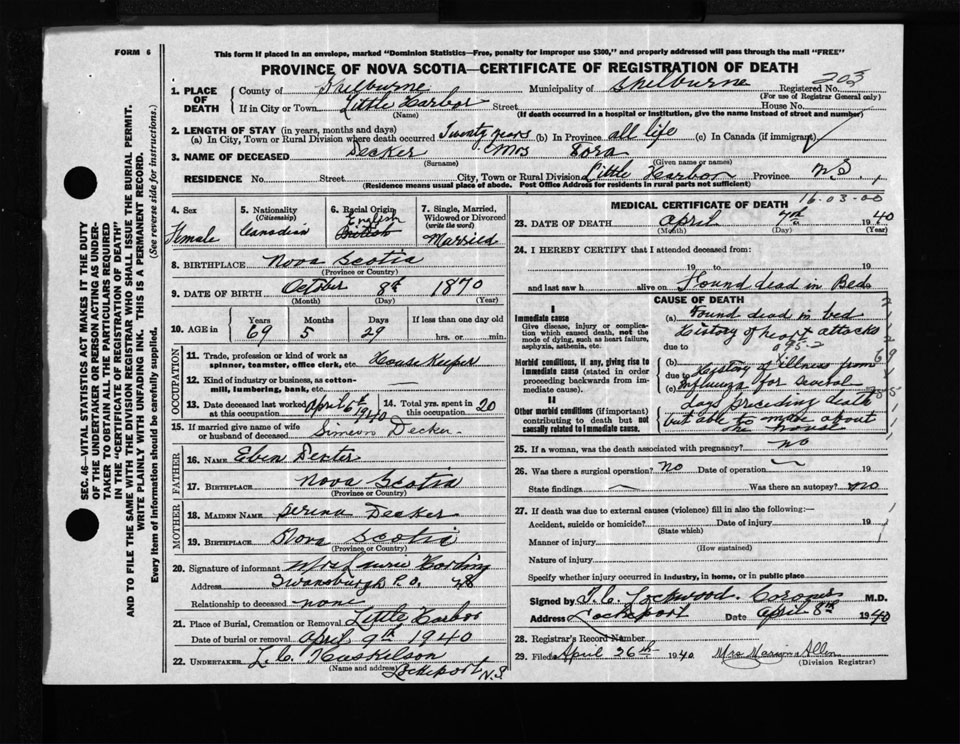 FORM 6
This form if placed in an envelope, marked "Dominion Statistics—Free, penalty for improper use $300," and properly addressed will pass through the mail "FREE"
PROVINCE OF NOVA SCOTIA—CERTIFICATE OF REGISTRATION OF DEATH
SEC. 46—VITAL STATISTICS ACT MAKES IT THE DUTY
OF THE UNDERTAKER OR PERSON ACTING AS UNDER-
TAKER TO OBTAIN ALL THE PARTICULARS REQUIRED
IN THE "CERTIFICATE OF REGISTRATION OF DEATH"
AND TO FILE THE SAME WITH THE DIVISION REGISTRAR WHO SHALL ISSUE THE BURIAL PERMIT.
WRITE PLAINLY WITH UNFADING INK. THIS IS A PERMANENT RECORD.
Every item of information should be carefully supplied. (See reverse side for instructions.)
1. PLACE OF DEATH County of Shelburne Municipality of Shelburne Registered No. 203
(For use of Registrar General only)
If in City or Town Little Harbor Street House No.
(Name) (If death occurred in a hospital or institution, give the name instead of street and number)
2. LENGTH OF STAY (in years, months and days)
(a) In City, Town or Rural Division where death occurred Twenty years (b) In Province all life (c) In Canada (if immigrant)
3. NAME OF DECEASED Decker Mrs
(Surname) (Given name or names)
RESIDENCE No. Street City, Town or Rural Division Little Harbor Province N S
(Residence means usual place of abode. Post Office Address for residents in rural parts not sufficient)
4. Sex Female
5. Nationality (Citizenship) Canadian
6. Racial Origin English British
7. Single, Married, Widowed or Divorced (write the word) Married
8. BIRTHPLACE Nova Scotia
(Province or Country)
9. DATE OF BIRTH October 8th 1870
(Month) (Day) (Year)
10. AGE in Years 69 Months 5 Days 29 If less than one day old hrs. or min.
OCCUPATION
11. Trade, profession or kind of work as spinner, teamster, office clerk, etc. House Keeper
12. Kind of industry or business, as cotton-mill, lumbering, bank, etc. —
13. Date deceased last worked at this occupation April 6th 1940
14. Total yrs. spent in this occupation 20
15. If married give name of wife or husband of deceased Simeon Decker
FATHER
16. NAME Eben Dexter
17. BIRTHPLACE Nova Scotia
(Province or Country)
MOTHER
18. MAIDEN NAME Serena Decker
19. BIRTHPLACE Nova Scotia
(Province or Country)
20. Signature of informant Mrs
Address Swansburgh P.O. NS
Relationship to deceased none
21. Place of Burial, Cremation or Removal Little Harbor
Date of burial or removal April 9th 1940
22. UNDERTAKER L.C. Huskilson
(Name and address) Lockeport N.S
MEDICAL CERTIFICATE OF DEATH 16-03-00
23. DATE OF DEATH April 7th 1940
(Month) (Day) (Year)
24. I HEREBY CERTIFY that I attended deceased from:
19 to 19
and last saw h alive on Found dead in Bed 19
CAUSE OF DEATH
I
Immediate cause
Give disease, injury or complication which caused death, not the mode of dying, such as heart failure, asphyxia, asthenia, etc.
Morbid conditions, if any, giving rise to immediate cause (stated in order proceeding backwards from immediate cause).
II
Other morbid conditions (if important) contributing to death but not causally related to immediate cause.
(a) Found dead in bed
History of heart attacks
due to 095-2
(b) History of illness from
due to
(c) Influenza for several
days preceding death
but able to move about
the house
25. If a woman, was the death associated with pregnancy? no
26. Was there a surgical operation? no Date of operation 19
State findings Was there an autopsy? no
27. If death was due to external causes (violence) fill in also the following:—
Accident, suicide or homicide? Date of injury 19
(State which)
Manner of injury
(How sustained)
Nature of injury
Specify whether injury occurred in industry, in home, or in public place
Signed by Lockwood. Coroner M.D.
Address Lockeport Date April 8th 1940
28. Registrar's Record Number
29. Filed April 26th 1940 Mrs Allen
(Division Registrar)